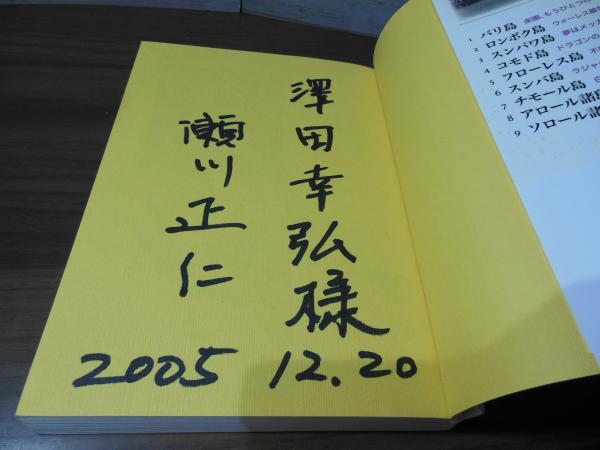 澤田幸弘様
瀬川正仁
2005 12.20
1 バリ島 楽園、もうひとつの
2 ロンボク島 ウォーレス
3 スンバワ島 夢はメッカ
4 コモド島 ドラゴンの
5 フローレス島
6 スンバ島 ラジャ
7 チモール島
8 アロール諸島
9 ソロール諸